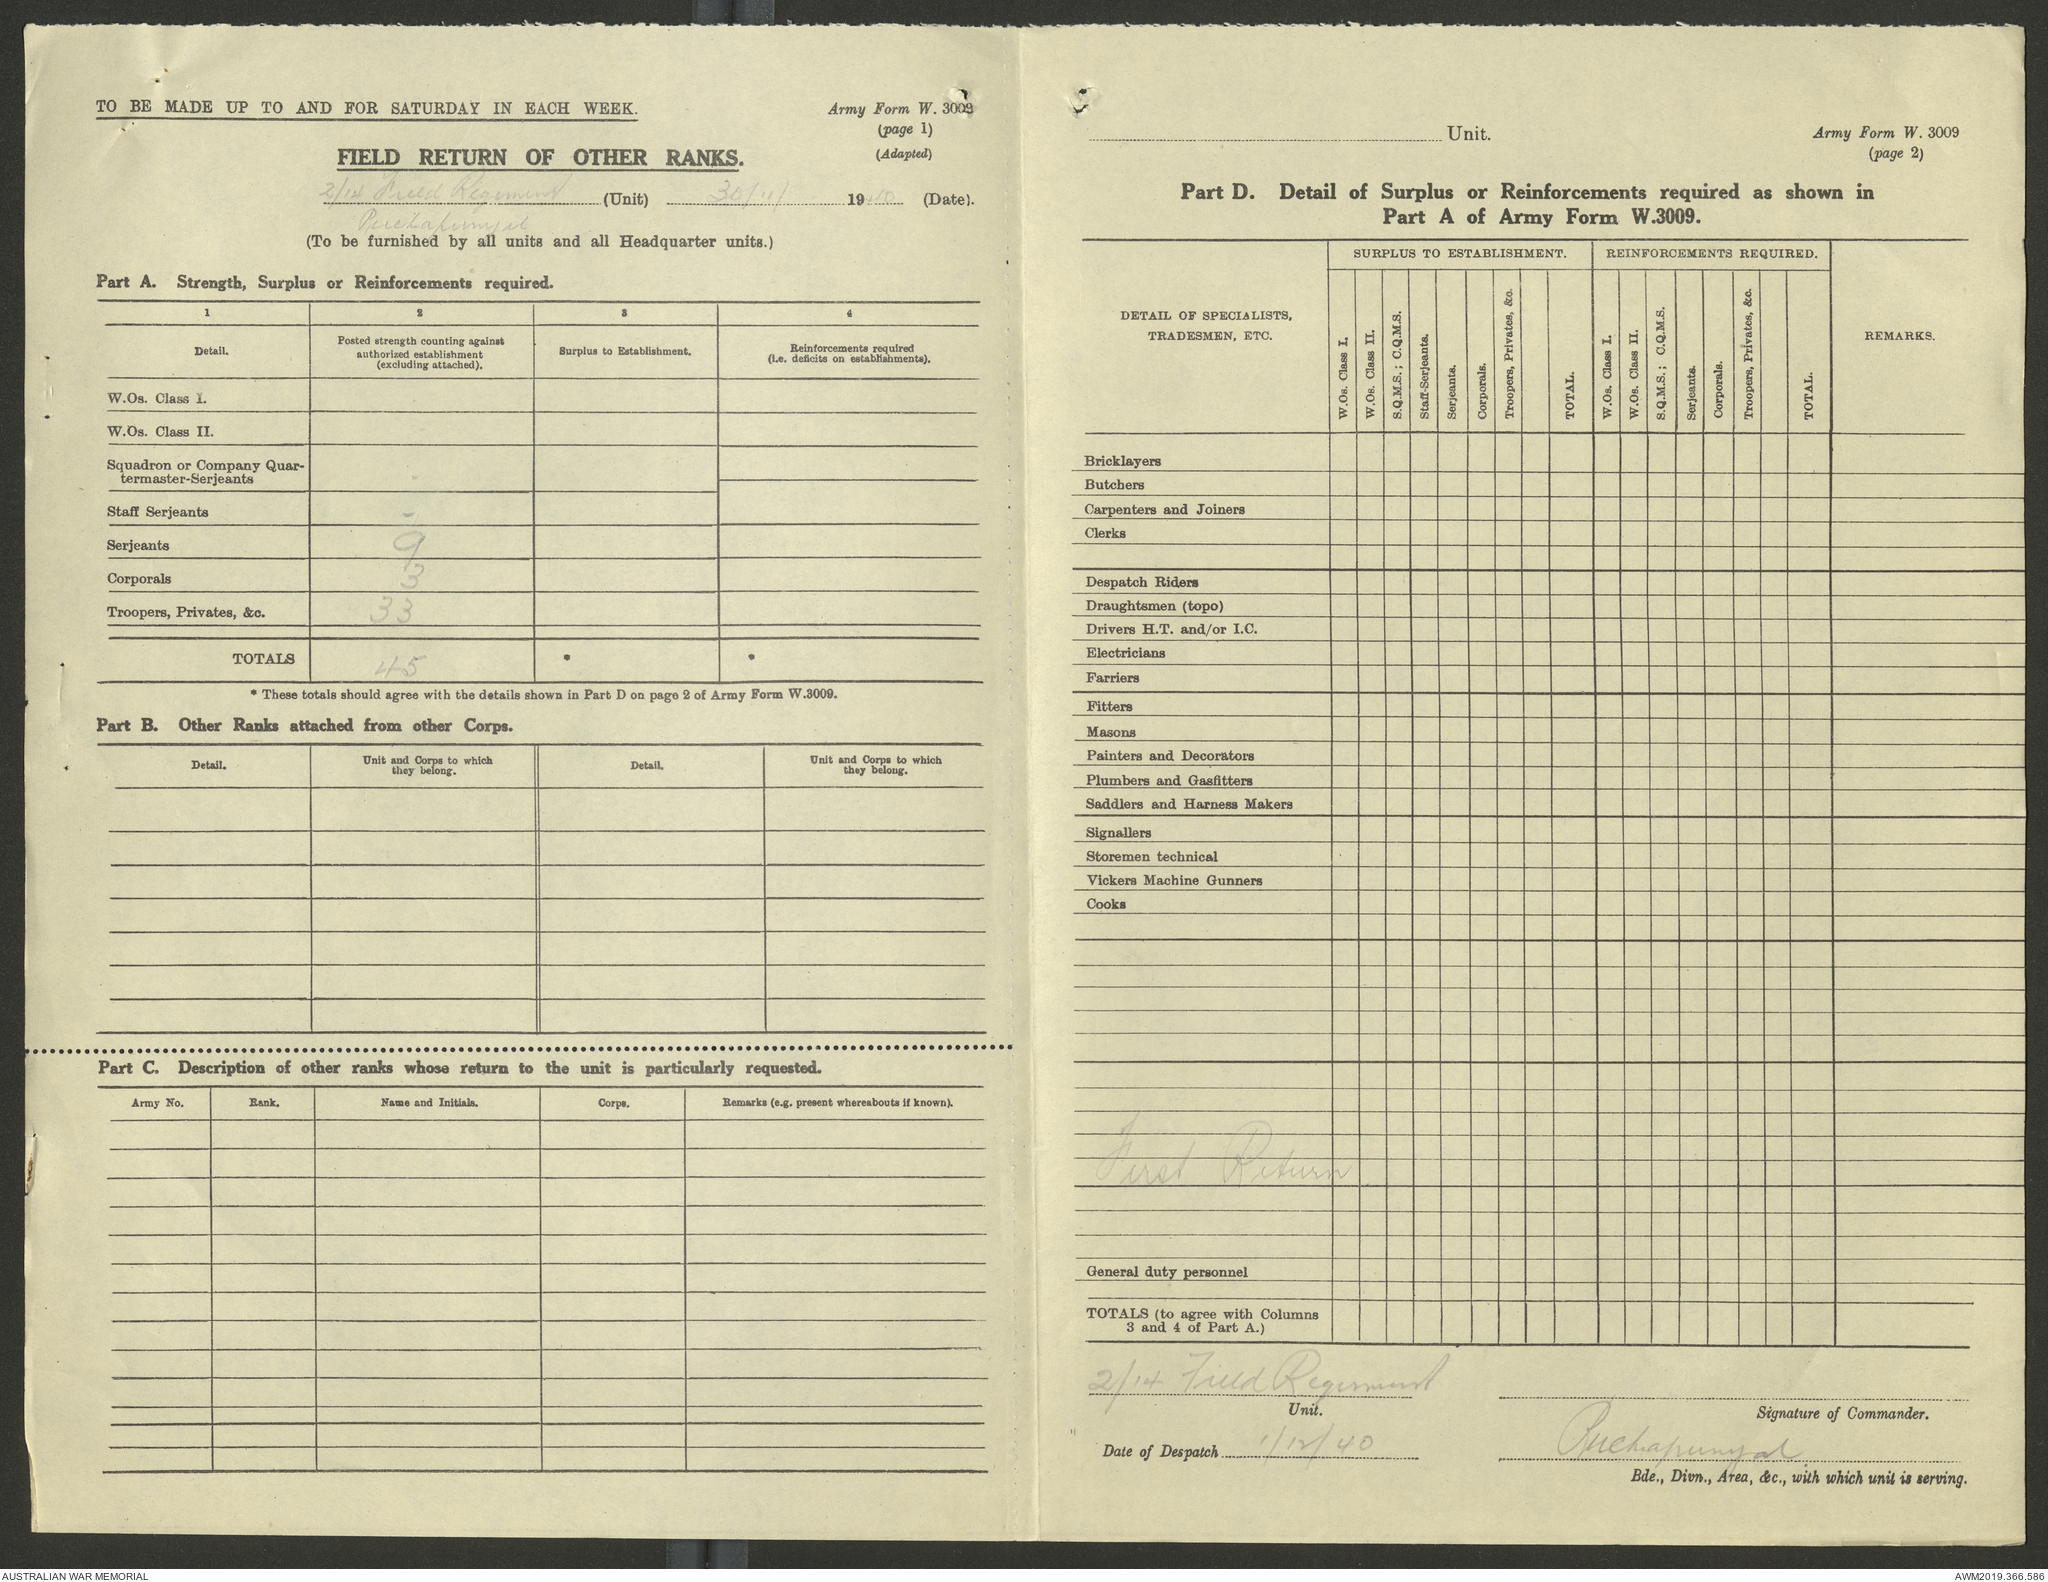 TO BE MADE UP TO AND FOR SATURDAY IN EACH WEEK.
Army Form W. 3009
(page 1)
(Adapted)
FIELD RETURN OF OTHER RANKS.
2/14 Field Regiment (Unit) 30/11/ 1940 (Date).
Puckapunyal
(To be furnished by all units and all Headquarter units.)
Part A. Strength, Surplus or Reinforcements required.
1 2 3 4
Detail. Posted strength counting against authorized establishment (excluding attached). Surplus to Establishment. Reinforcements required (i.e. deficits on establishments).
W.Os. Class I.
W.Os. Class II.
Squadron or Company Quar-
termaster-Serjeants
Staff Serjeants -
Serjeants 9
Corporals 3
Troopers, Privates, &c. 33
TOTALS 45 * *
* These totals should agree with the details shown in Part D on page 2 of Army Form W.3009.
Part B. Other Ranks attached from other Corps.
Detail. Unit and Corps to which they belong. Detail. Unit and Corps to which they belong.
Part C. Description of other ranks whose return to the unit is particularly requested.
Army No. Rank. Name and Initials. Corps. Remarks (e.g. present whereabouts if known).
Unit.
Army Form W. 3009
(page 2)
Part D. Detail of Surplus or Reinforcements required as shown in
Part A of Army Form W.3009.
SURPLUS TO ESTABLISHMENT. REINFORCEMENTS REQUIRED.
DETAIL OF SPECIALISTS,
TRADESMEN, ETC.
W.Os. Class I.
W.Os. Class II.
S.Q.M.S.; C.Q.M.S.
Staff-Serjeants.
Serjeants.
Corporals.
Troopers, Privates, &c.
TOTAL.
W.Os. Class I.
W.Os. Class II.
S.Q.M.S.; C.Q.M.S.
Serjeants.
Corporals.
Troopers, Privates, &c.
TOTAL.
REMARKS.
Bricklayers
Butchers
Carpenters and Joiners
Clerks
Despatch Riders
Draughtsmen (topo)
Drivers H.T. and/or I.C.
Electricians
Farriers
Fitters
Masons
Painters and Decorators
Plumbers and Gasfitters
Saddlers and Harness Makers
Signallers
Storemen technical
Vickers Machine Gunners
Cooks
First Return
General duty personnel
TOTALS (to agree with Columns
3 and 4 of Part A.)
2/14 Field Regiment
Unit.
Signature of Commander.
Date of Despatch 1/12/40
Puckapunyal
Bde., Divn., Area, &c., with which unit is serving.
AUSTRALIAN WAR MEMORIAL
AWM2019.366.586